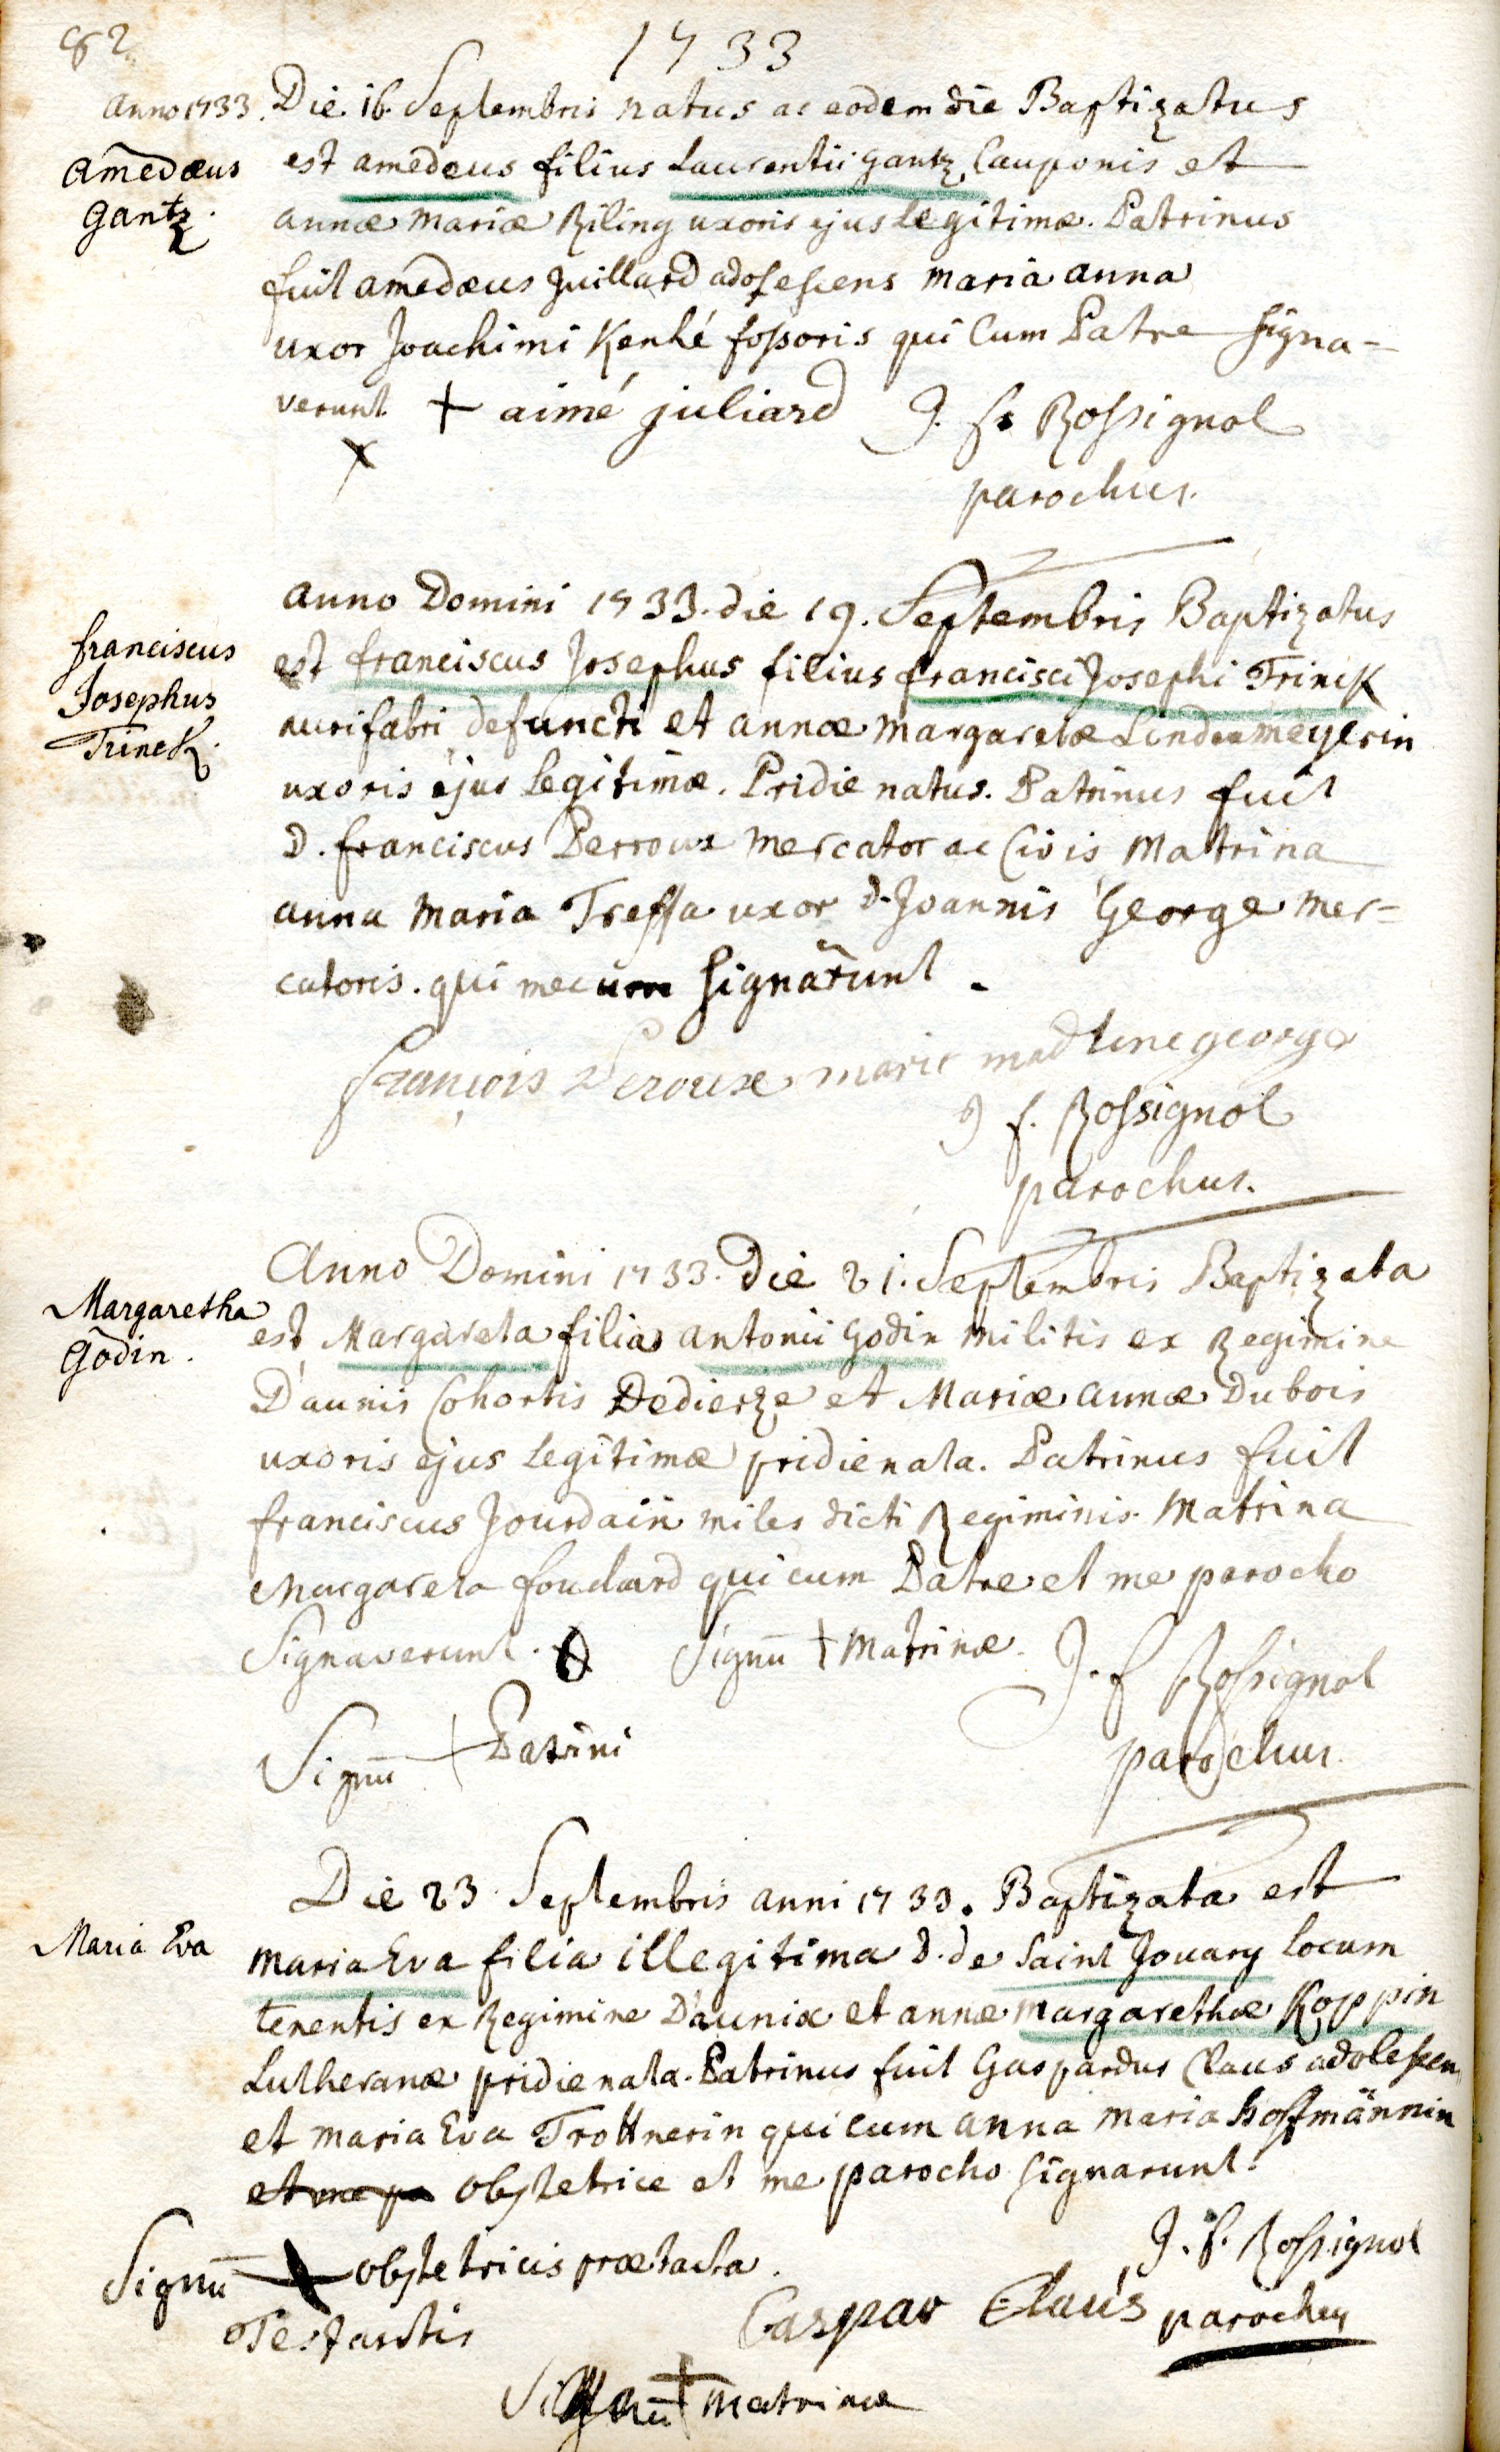 82
1733
Anno 1733. Die 16. Septembris natus ac eodem die Baptizatus
Amedæus
Gantz.
est amedeus filius Laurentii Gantz Cauponis et
annæ Mariæ Riling uxoris ejus legitimæ. Patrinus
fuit amedæus Juillard adolescens maria anna
uxor Joachimi Kenlé fossoris qui Cum Patre signa-
verunt + aimé juliard J. f. Rossignol
x
parochus.
Anno Domini 1733. die 19. Septembris Baptizatus
franciscus
Josephus
Trinck.
est franciscus Josephus filius francisci Josephi Trinck
aurifabri defuncti et annæ Margaretæ Lindemeyerin
uxoris ejus legitimæ. Pridie natus. Patrinus fuit
D. franciscus Perroux Mercator ac Civis Matrina
anna Maria Treffa uxor d. Joannis George Mer-
catoris. qui mecum signarunt.
françois Peroux marie madlene george
J f. Rossignol
parochus.
Anno Domini 1733. Die 21. Septembris Baptizata
Margaretha
Godin.
est Margareta filia antonii Godin militis ex Regimine
D'aunis Cohortis Dedierze et Mariæ annæ Dubois
uxoris ejus legitimæ pridie nata. Patrinus fuit
franciscus Jourdain miles dicti Regiminis. Matrina
Margareta fouchard qui cum Patre et me parocho
Signaverunt. Signū + Matrinæ. J. f Rossignol
Signū + Patrini
parochus.
Die 23 Septembris anni 1733. Baptizata est
Maria Eva
maria Eva filia illegitima D. de Saint Jouary locum
tenentis ex Regimine D'aunix et annæ margarethæ Koppin
Lutheranæ pridie nata. Patrinus fuit Gaspardus Claus adolescen
et maria Eva Trottnerin qui cum anna Maria hoffmännin
et me pa obstetrice et me parocho signarunt.
Signū + obstetricis prætacta.
Testantis
J. f. Rossignol
Caspar Claus parochus
Signū + Matrinæ